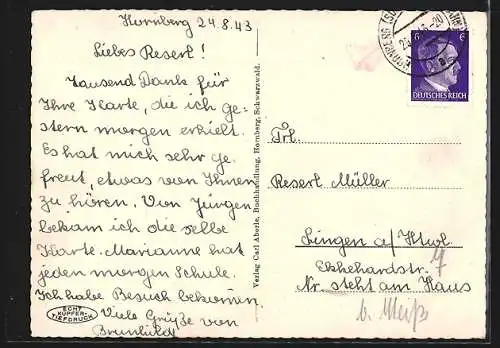 Hornberg 24.8.43
Liebes Reserl!
Tausend Dank für
Ihre Karte, die ich ge-
stern morgen erhielt.
Es hat mich sehr ge-
freut, etwas von Ihnen
zu hören. Von Jürgen
bekam ich die selbe
Karte. Marianne hat
jeden morgen Schule.
Ich habe Besuch bekomm.
Viele Grüße von
Brunhilde
ECHT
KUPFER-
TIEFDRUCK
Verlag Carl Aberle, Buchhandlung, Hornberg, Schwarzwald.
6 6
DEUTSCHES REICH
Frl.
Reserl Müller
Singen a/Htwl.
Ekkehardstr.
Nr. steht am Haus
b. Meiß